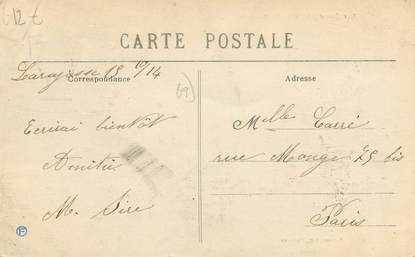 12 t
CARTE POSTALE
Larajasse 18 10/14
Correspondance
Adresse
69
Ecrirai bientôt
Amitié
M. Sire
Melle Carré
rue Monge 75 bis
Paris
F